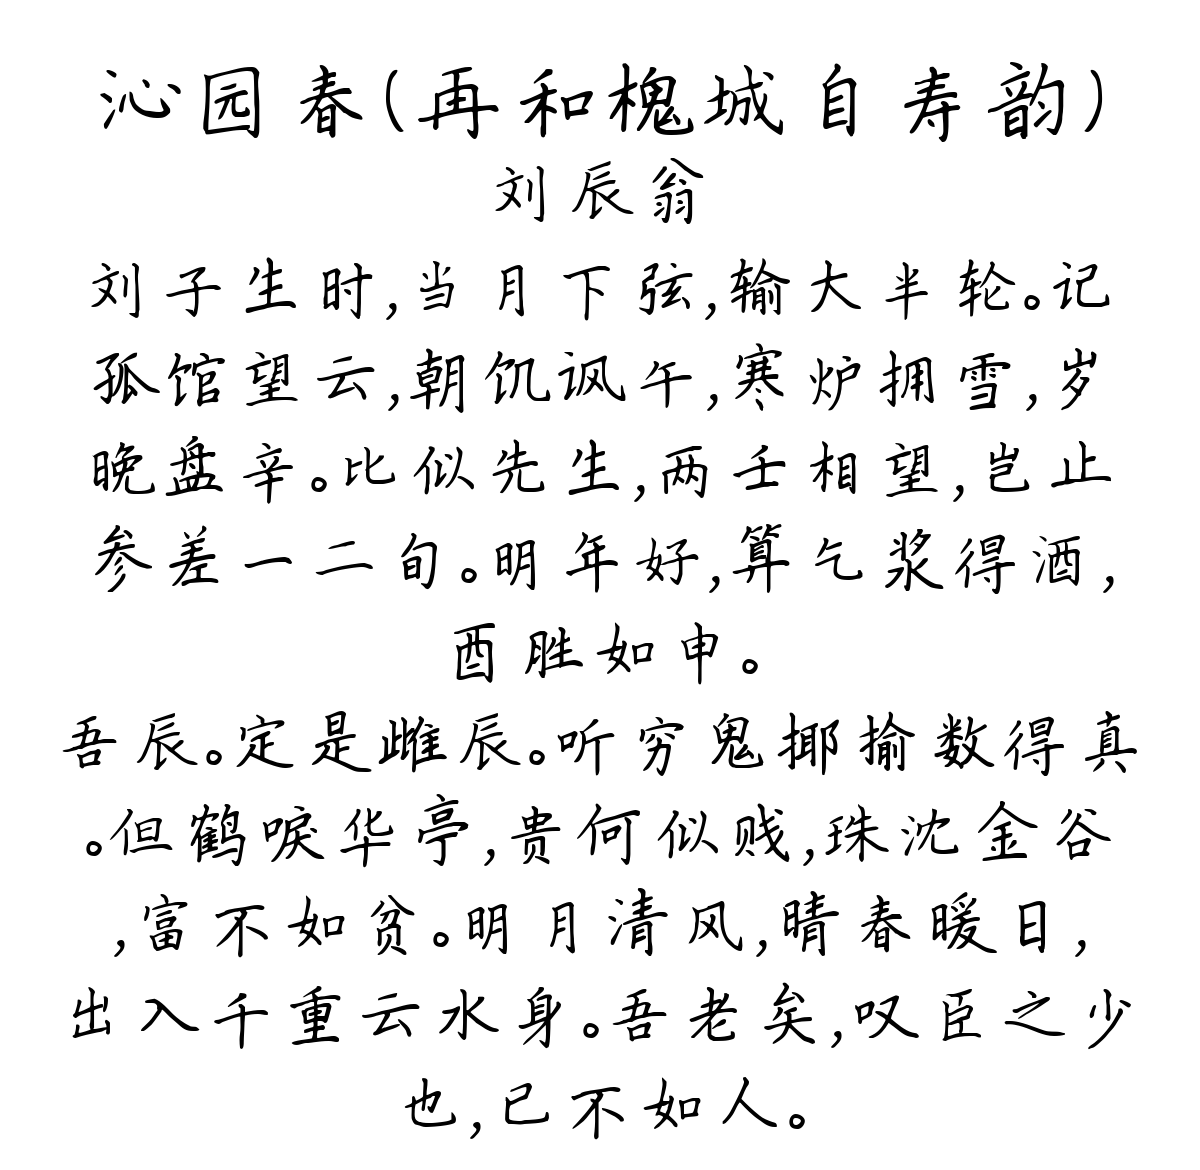 沁园春(再和槐城自寿韵)
刘辰翁
刘子生时,当月下弦,输大半轮。记
孤馆望云,朝饥讽午,寒炉拥雪,岁
晚盘辛。比似先生,两壬相望,岂止
参差一二旬。明年好,算乞浆得酒,
酉胜如申。
吾辰。定是雌辰。听穷鬼揶揄数得真
。但鹤唳华亭,贵何似贱,珠沈金谷
,富不如贫。明月清风,晴春暖日,
出入千重云水身。吾老矣,叹臣之少
也,已不如人。